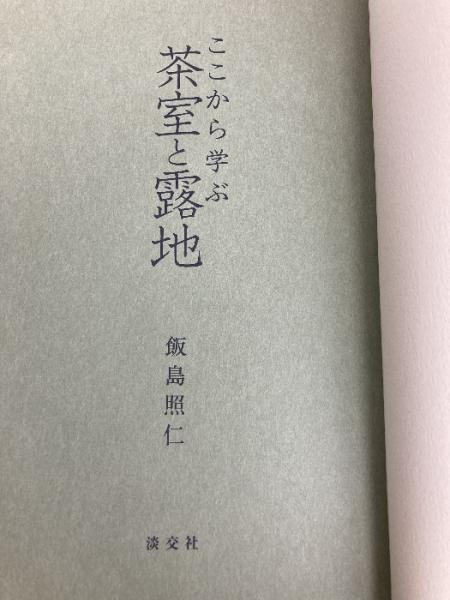 ここから学ぶ
茶室と露地
飯島照仁
淡交社